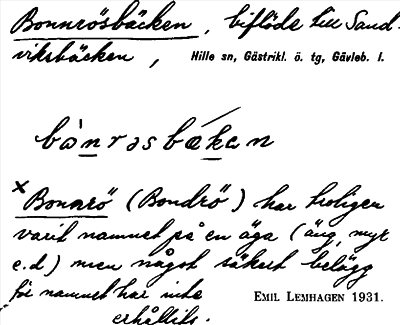 Bonnrösbäcken, biflöde till Sand-
viksbäcken, Hille sn, Gästrikl. ö. tg, Gävleb. l.
bònrəsbækən
×Bonnrö (Bondrö) har troligen
varit namnet på en äga (äng, myr
e.d) men något säkert belägg
för namnet har inte
erhållits.
EMIL LEMHAGEN 1931.